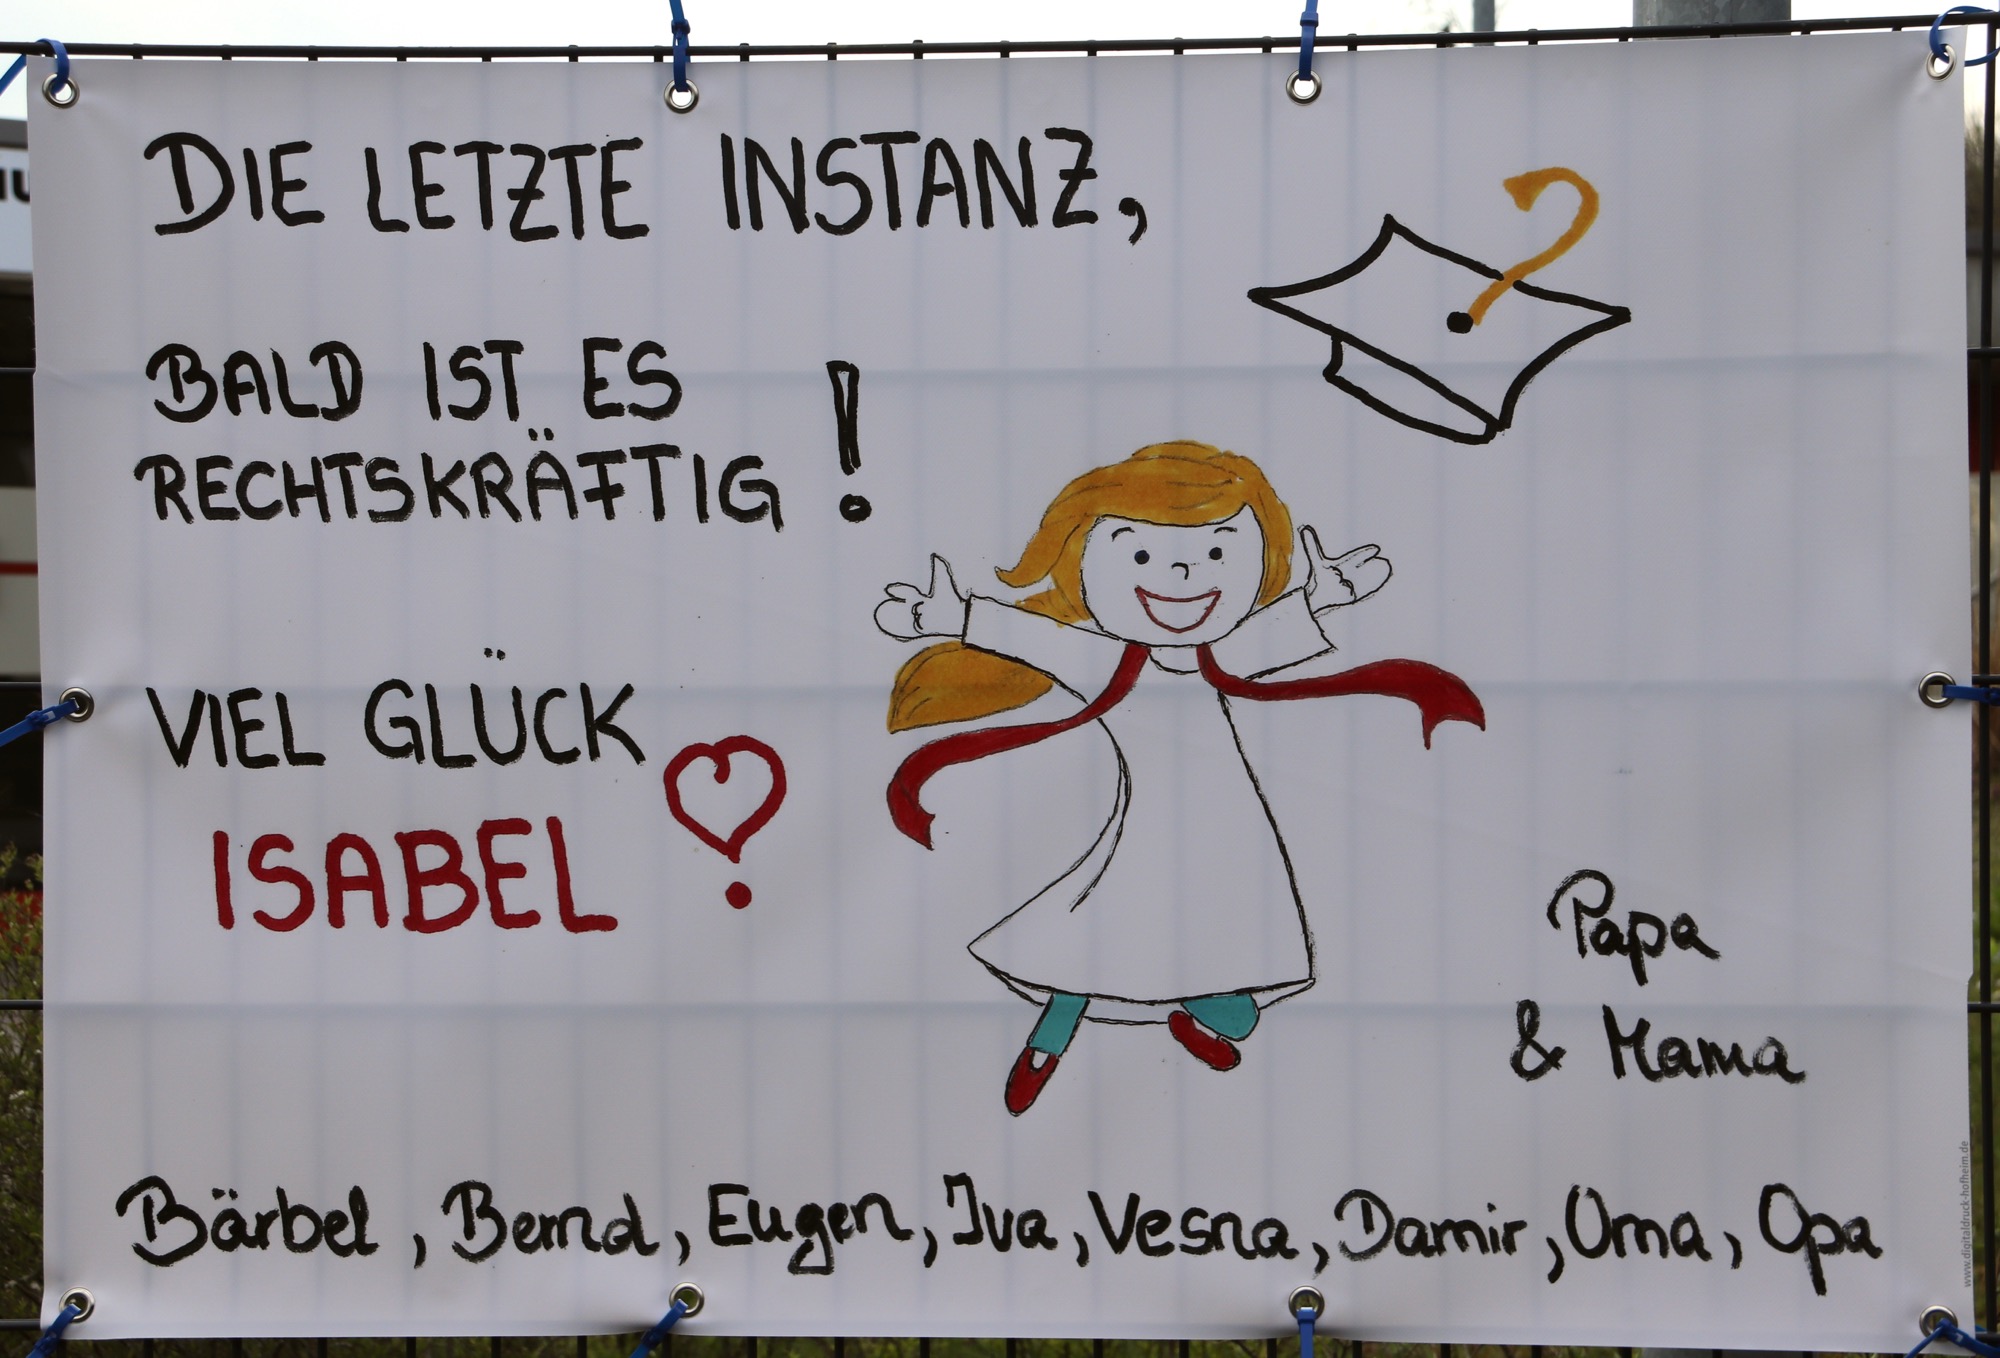 DIE LETZTE INSTANZ,
BALD IST ES
RECHTSKRÄFTIG !
VIEL GLÜCK
ISABEL
Papa
& Mama
Bärbel, Bernd, Eugen, Iva, Vesna, Damir, Oma, Opa
www.digitaldruck-hofheim.de